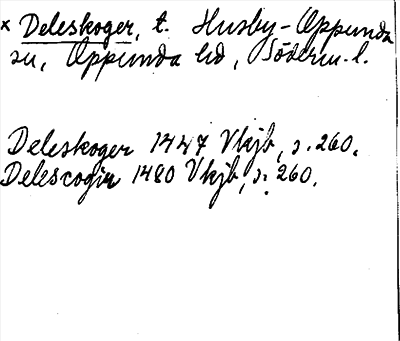 × Deleskoger, t. Husby-Oppunda
sn, Oppunda hd, Söderm. l.
Deleskoger 1447 Vkjb, s. 260.
Delescogin 1480 Vkjb, s. 260.